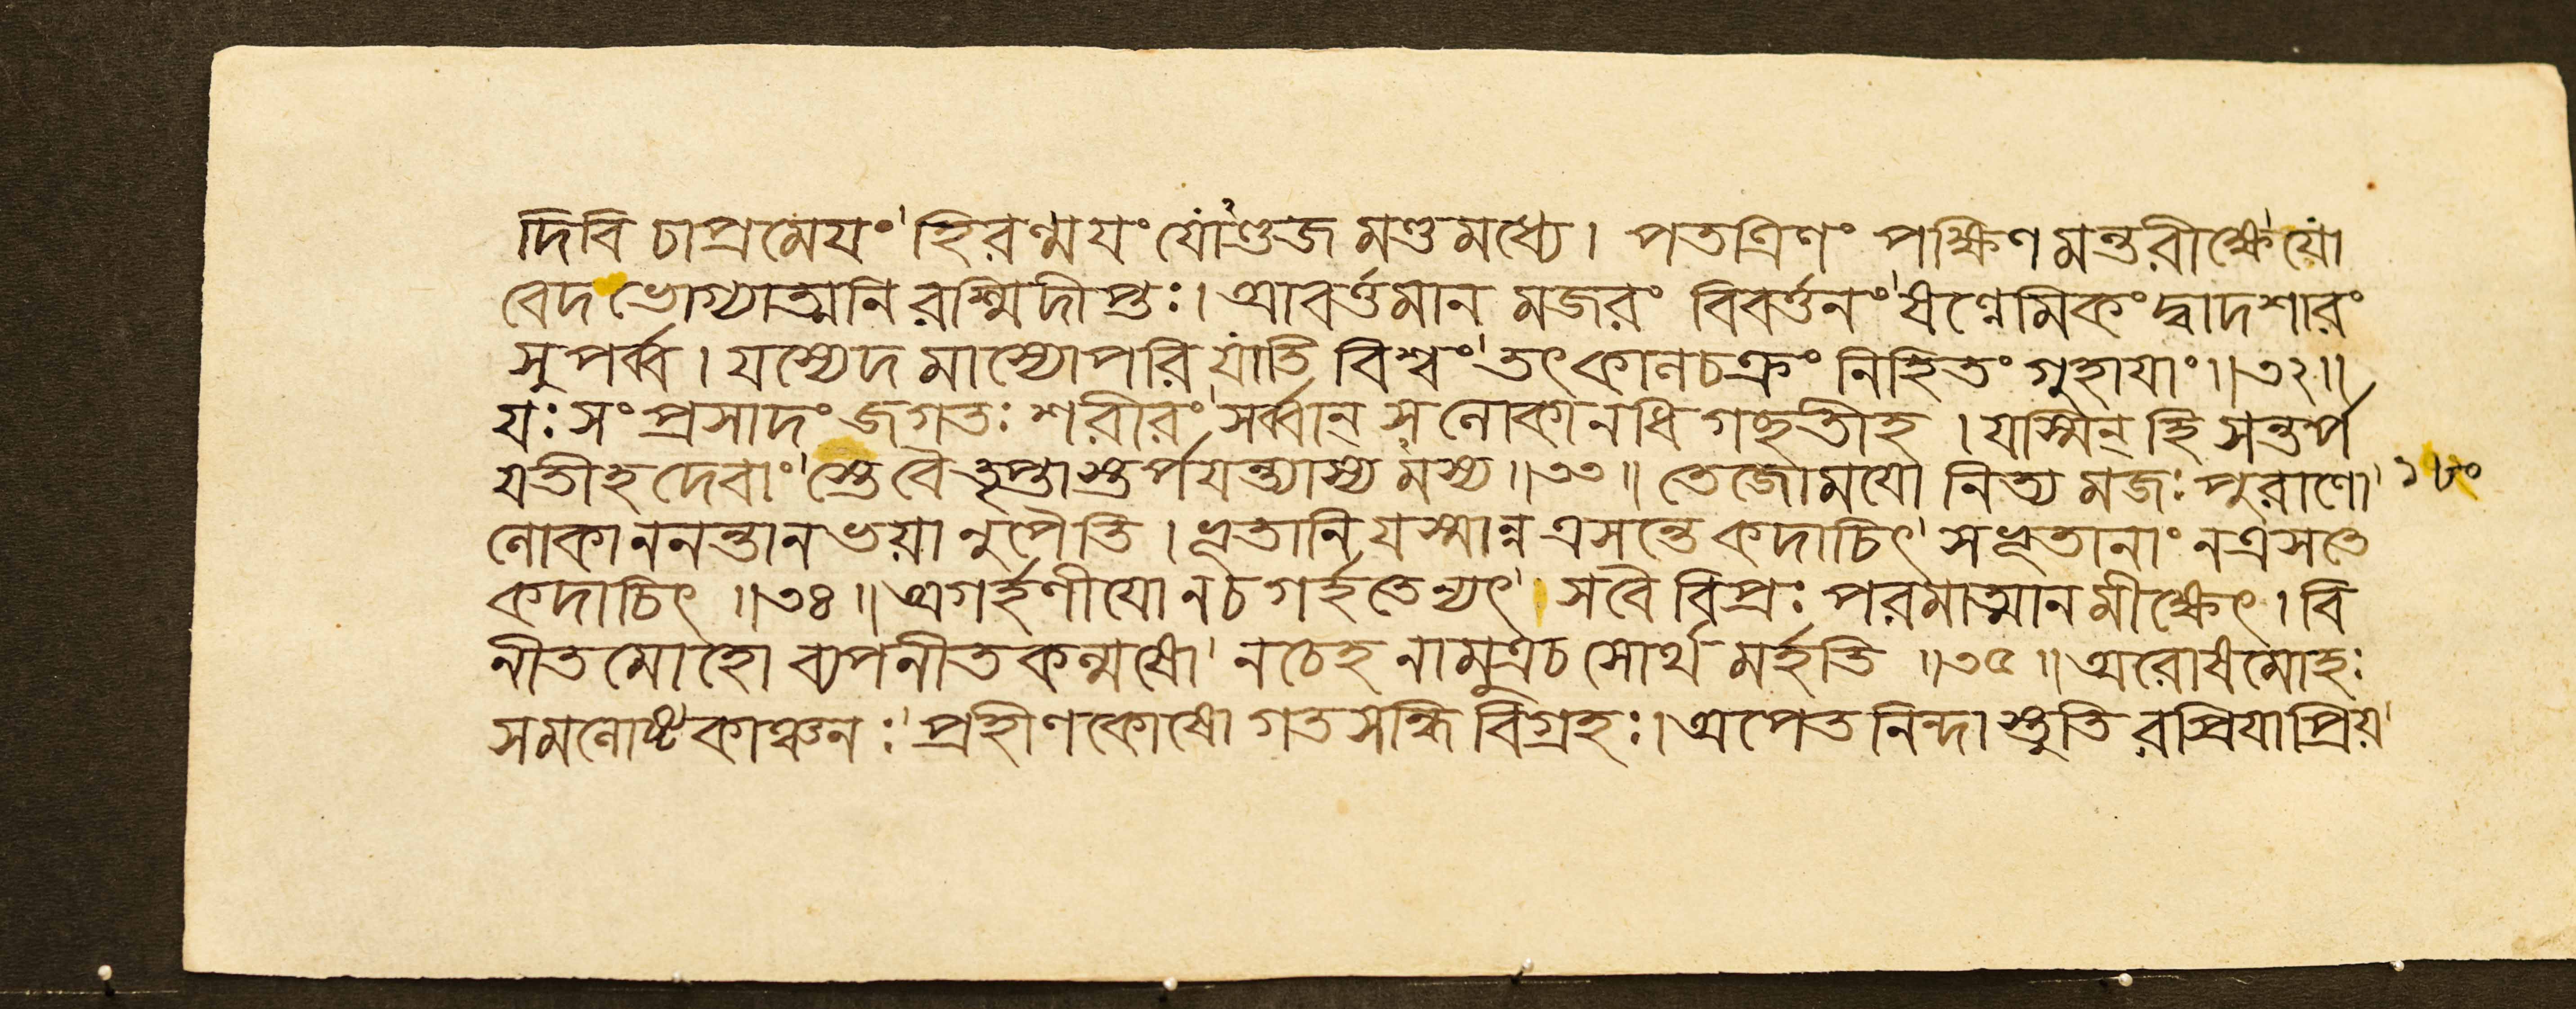 দিবি চাপ্রমেয়ং' হিরণ্ময়ং যোঽণ্ডজ মণ্ডমধ্যে। পতত্রিণং পক্ষিণমন্তরীক্ষে'যো
বেদ ভোগ্যাত্মনি রশ্মিদীপ্তঃ। আবর্ত্তমান মজরং বিবর্ত্তনং' ষণ্নেমিকং দ্বাদশারং
সুপর্ব্ব। যস্যেদ মাস্যোপরি যাতি বিশ্বং' তৎ কালচক্রং নিহিতং গুহায়াং॥৩২॥
যঃ সংপ্রসাদং জগতঃ শরীরং' সর্ব্বান্ স লোকানধি গচ্ছতীহ। যস্মিন্ হি সন্তর্প
যতীহ দেবাং' স্তে বৈ তৃপ্তাস্তর্পযন্ত্যাস্য মস্য॥৩৩॥ তেজোময়ো নিত্য মজঃ পুরাণো' ১৮০
লোকাননন্তানভয়ানুপৈতি। ভূতানি যস্মান্ন ত্রসন্তে কদাচিৎ' স ভূতানাং ন ত্রসতে
কদাচিৎ ॥৩৪॥ অগর্হণীয়ো ন চ গর্হতেন্যৎ' স বৈ বিপ্রঃ পরমাত্মান মীক্ষেৎ। বি
নীত মোহো ব্যপনীত কল্মষো' ন চেহ নামুত্র চ সোর্থ মর্হতি ॥৩৫॥ অরোষমোহঃ
সমলোষ্টকাঞ্চনঃ' প্রহীণকোষো গতসন্ধি বিগ্রহঃ। অপেত নিন্দা স্তুতি রপ্রিয়াপ্রিয়'